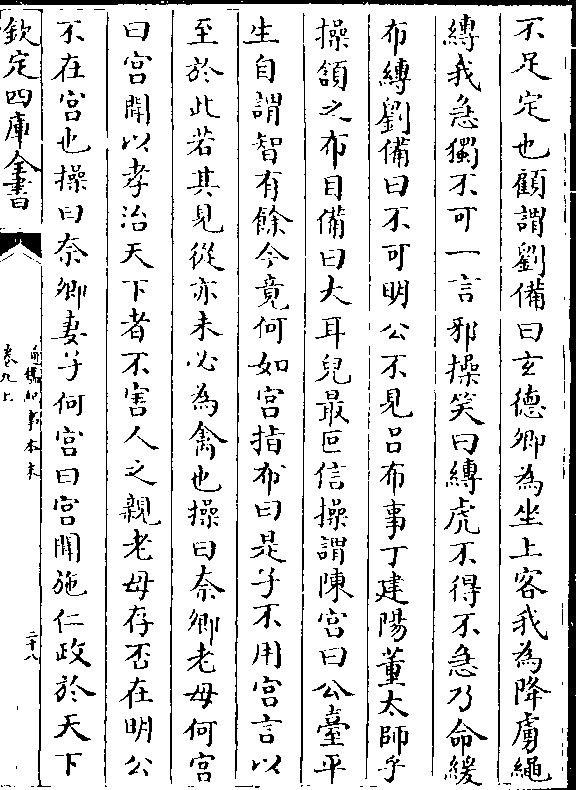 不足定也顧謂劉備曰玄德卿為坐上客我為降虜繩
縛我急獨不可一言邪操笑曰縛虎不得不急乃命緩
布縛劉備曰不可明公不見吕布事丁建陽董太師乎
操頷之布目備曰大耳兒最叵信操謂陳宫曰公臺平
生自謂智有餘今竟何如宫指布曰是子不用宫言以
至於此若其見從亦未必為禽也操曰奈卿老母何宫
曰宫聞以孝治天下者不害人之親老母存否在明公
不在宫也操曰奈卿妻子何宫曰宫聞施仁政於天下
欽定四庫全書
通鑑紀事本末
卷九上
二十八